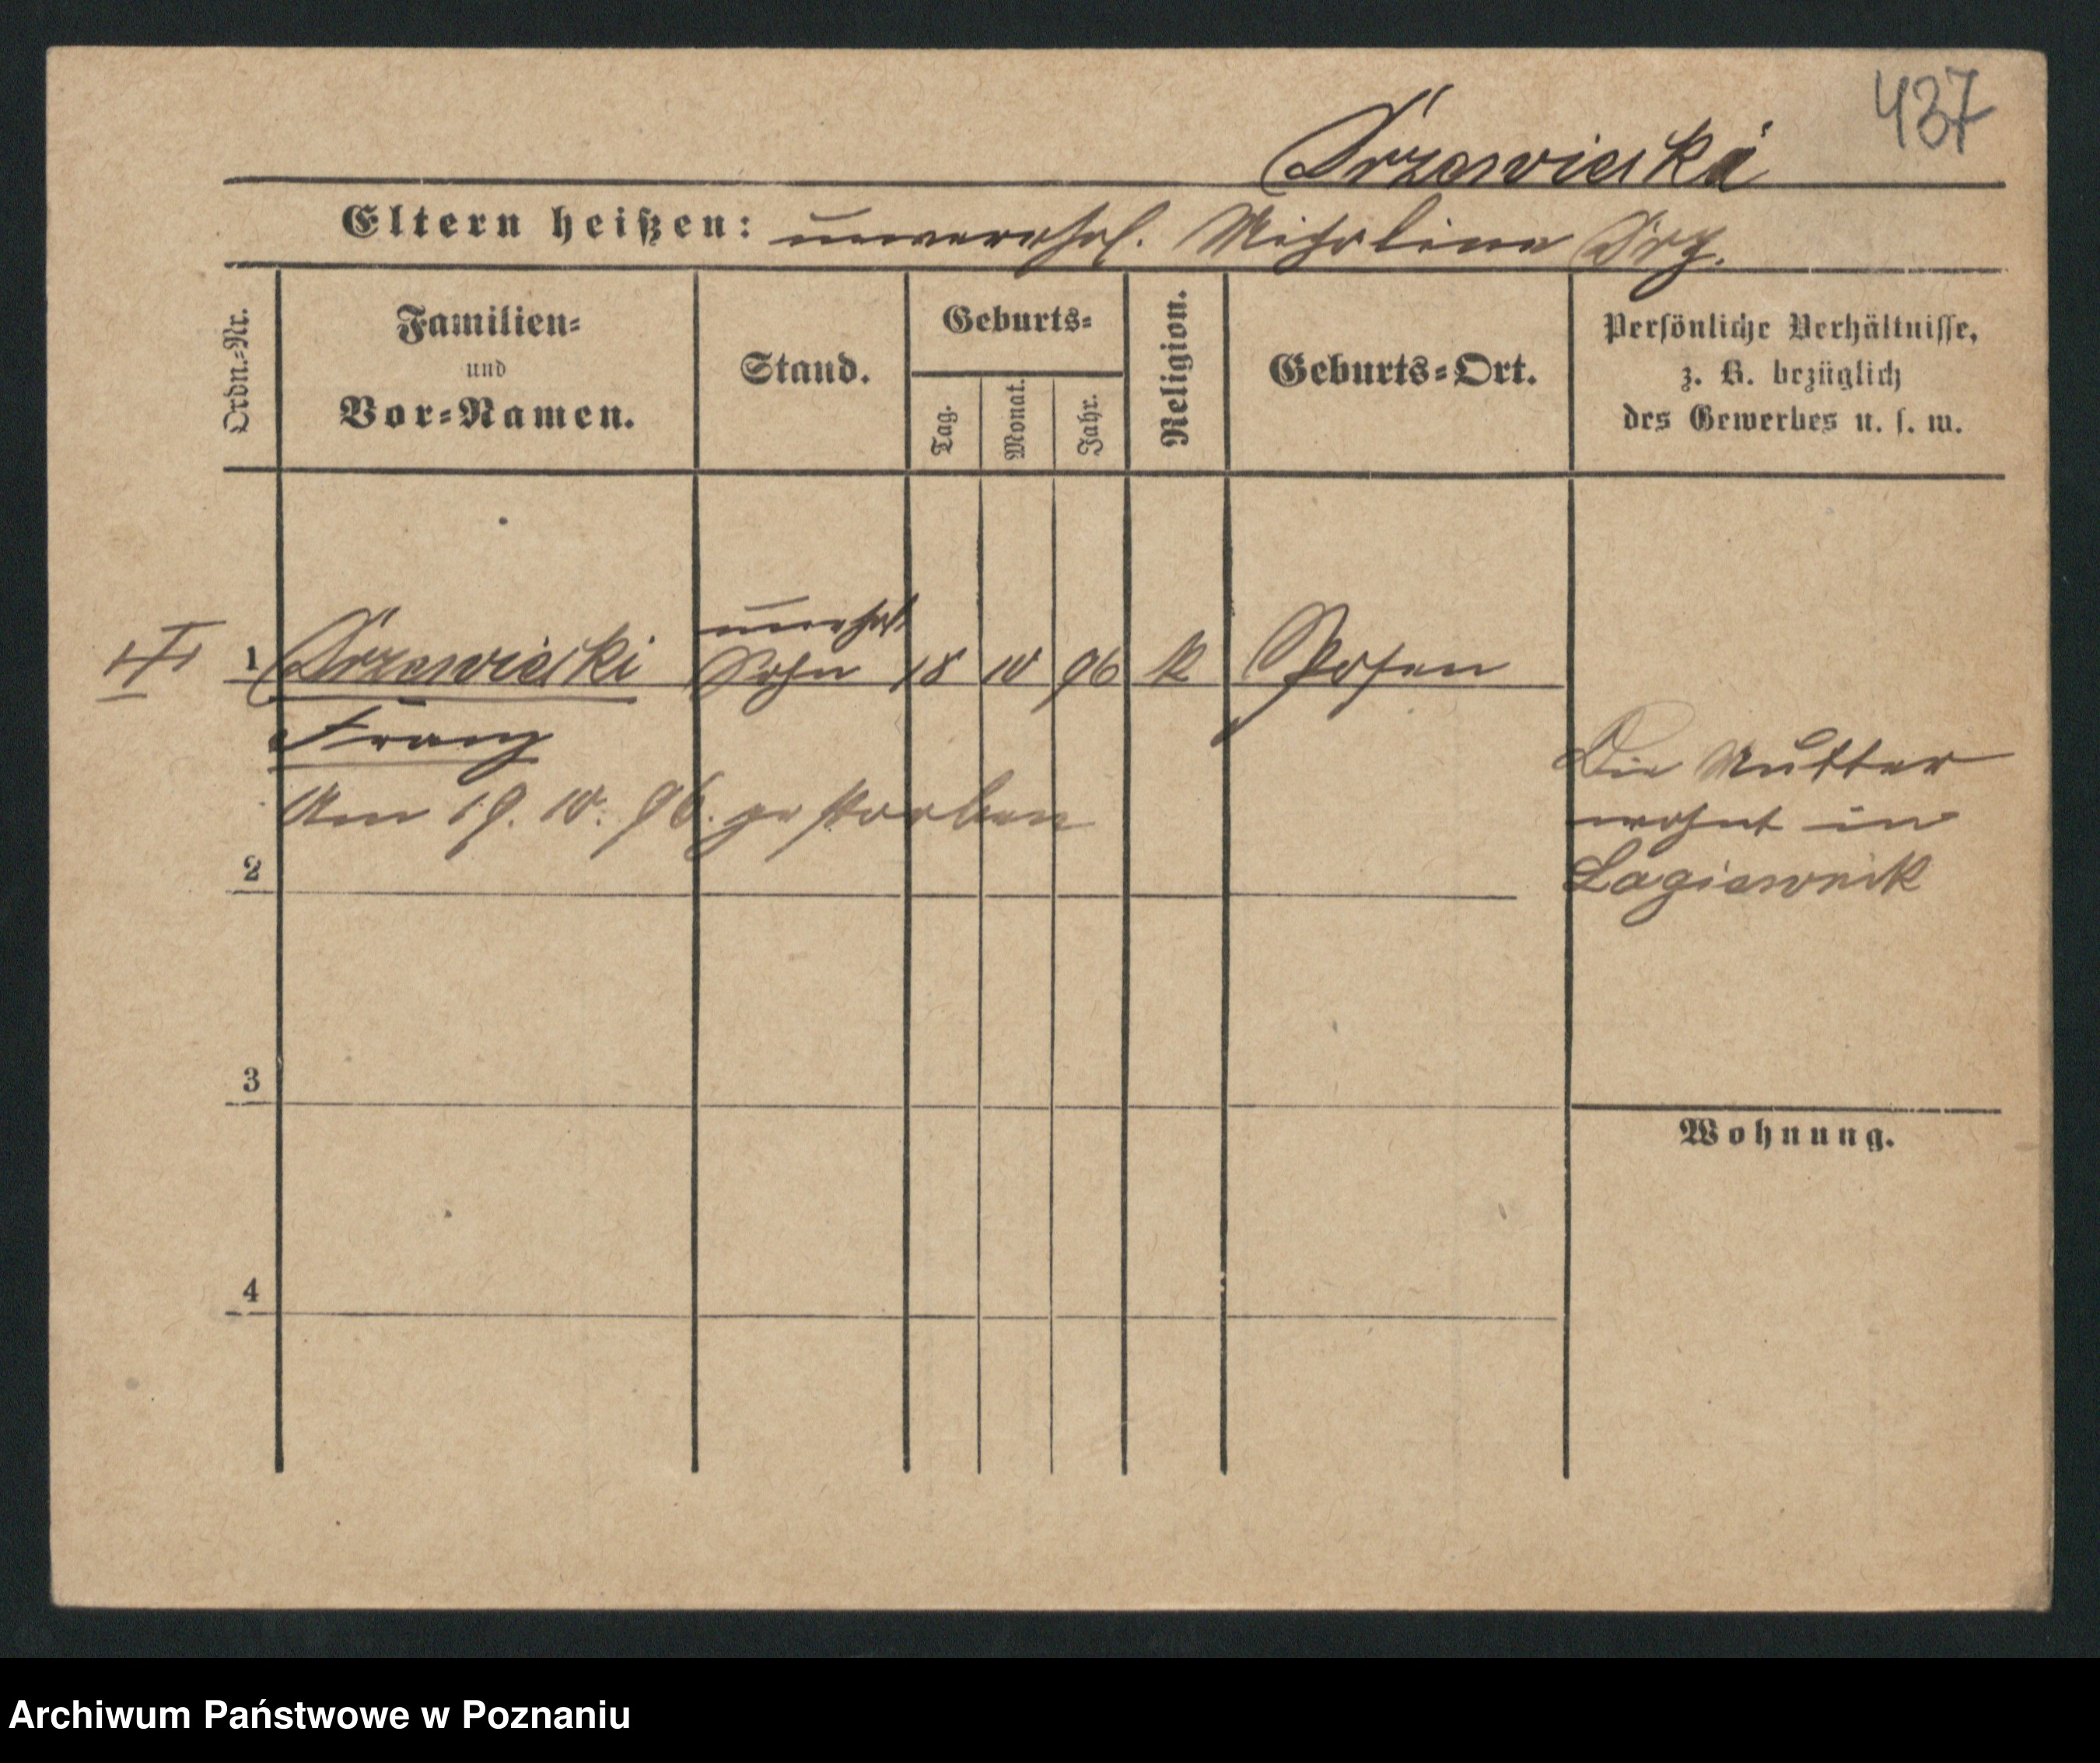 437
Drzewiecki
Eltern heißen: unverehel. Michalina Drz.
Ordn.-Nr.
Familien- und Vor-Namen.
Stand.
Geburts-
Tag.
Monat.
Jahr.
Religion.
Geburts-Ort.
Persönliche Verhältnisse,
z. B. bezüglich
des Gewerbes u. s. w.
unehel.
1 Drzewiecki Sohn 18 10 96 K Posen
Franz
Am 19. 10. 96. gestorben
Die Mutter
wohnt in
Lagiewnik
2
3
Wohnung.
4
Archiwum Państwowe w Poznaniu